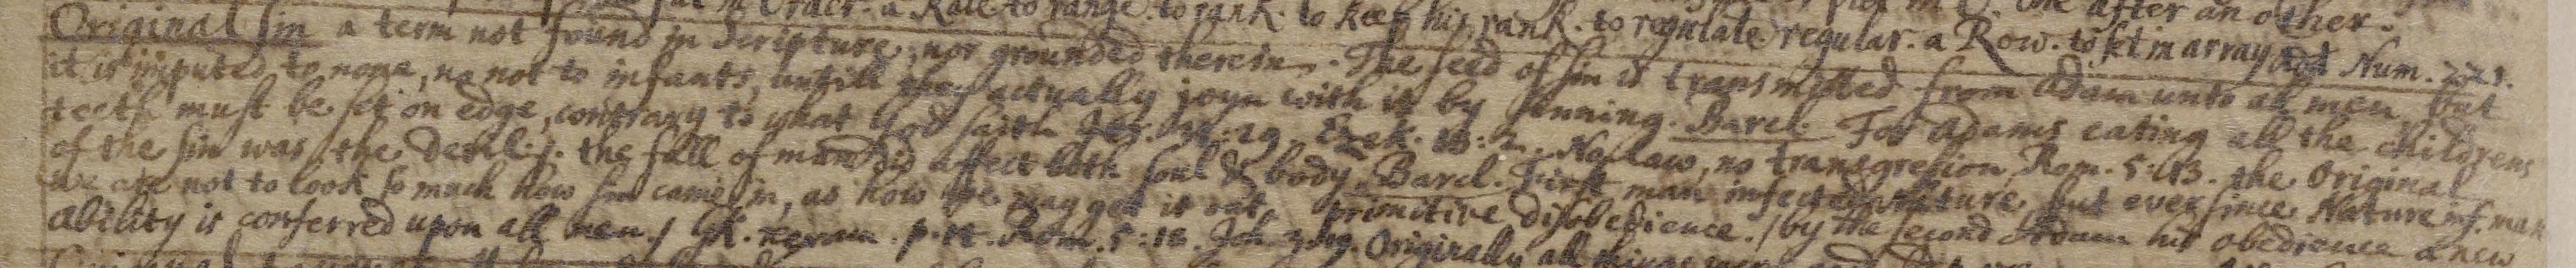 in Order. a Rule to range. to rank. to keep his rank. to regulate regular. a Row. to set in array after an other.
Original sin a term not found in Scripture, nor grounded therein. The seed of sin is transmitted from Adam unto all men, but
it is imputed to none, no not to infants, untill they actually joyn with it by sinning. Barcl. For Adams eating all the childrens
teeth must be set on edge, contrary to what God saith Jer. 31:29. Ezek. 18:2. No law, no transgression, Rom. 5:13. the Original
of the sin was the devil. the fall of man did affect both soul & body. Barcl. First man infected nature, but ever since Nature inf. man
we are not to look so much how sin came in, as how we may get it out, primitive disobedience. / by the second Adam his obedience a new
ability is conferred upon all men. / GK. p. 14. Rom. 5:18. Joh. Originally all things were